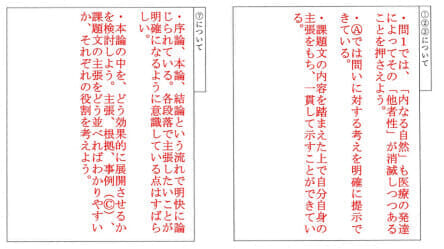 ①②③について
・問1では、「内なる自然」も医療の発達
によってその「他者性」が消滅しつつある
ことを押さえよう。
・Ⓐでは問いに対する考えを明確に提示で
きている。
・課題文の内容を踏まえた上で自分自身の
主張をもち、一貫して示すことができてい
る。
⑦について
・序論、本論、結論という流れで明快に論
じられている。各段落で主張したいことが
明確になるように意識している点はすばら
しい。
・本論の中を、どう効果的に展開させるか
を検討しよう。主張、根拠、事例(Ⓒ)、
課題文の主張をどう並べればわかりやすい
か、それぞれの役割を考えよう。